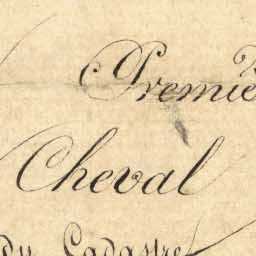 Premiè
Cheval
du Cadastre